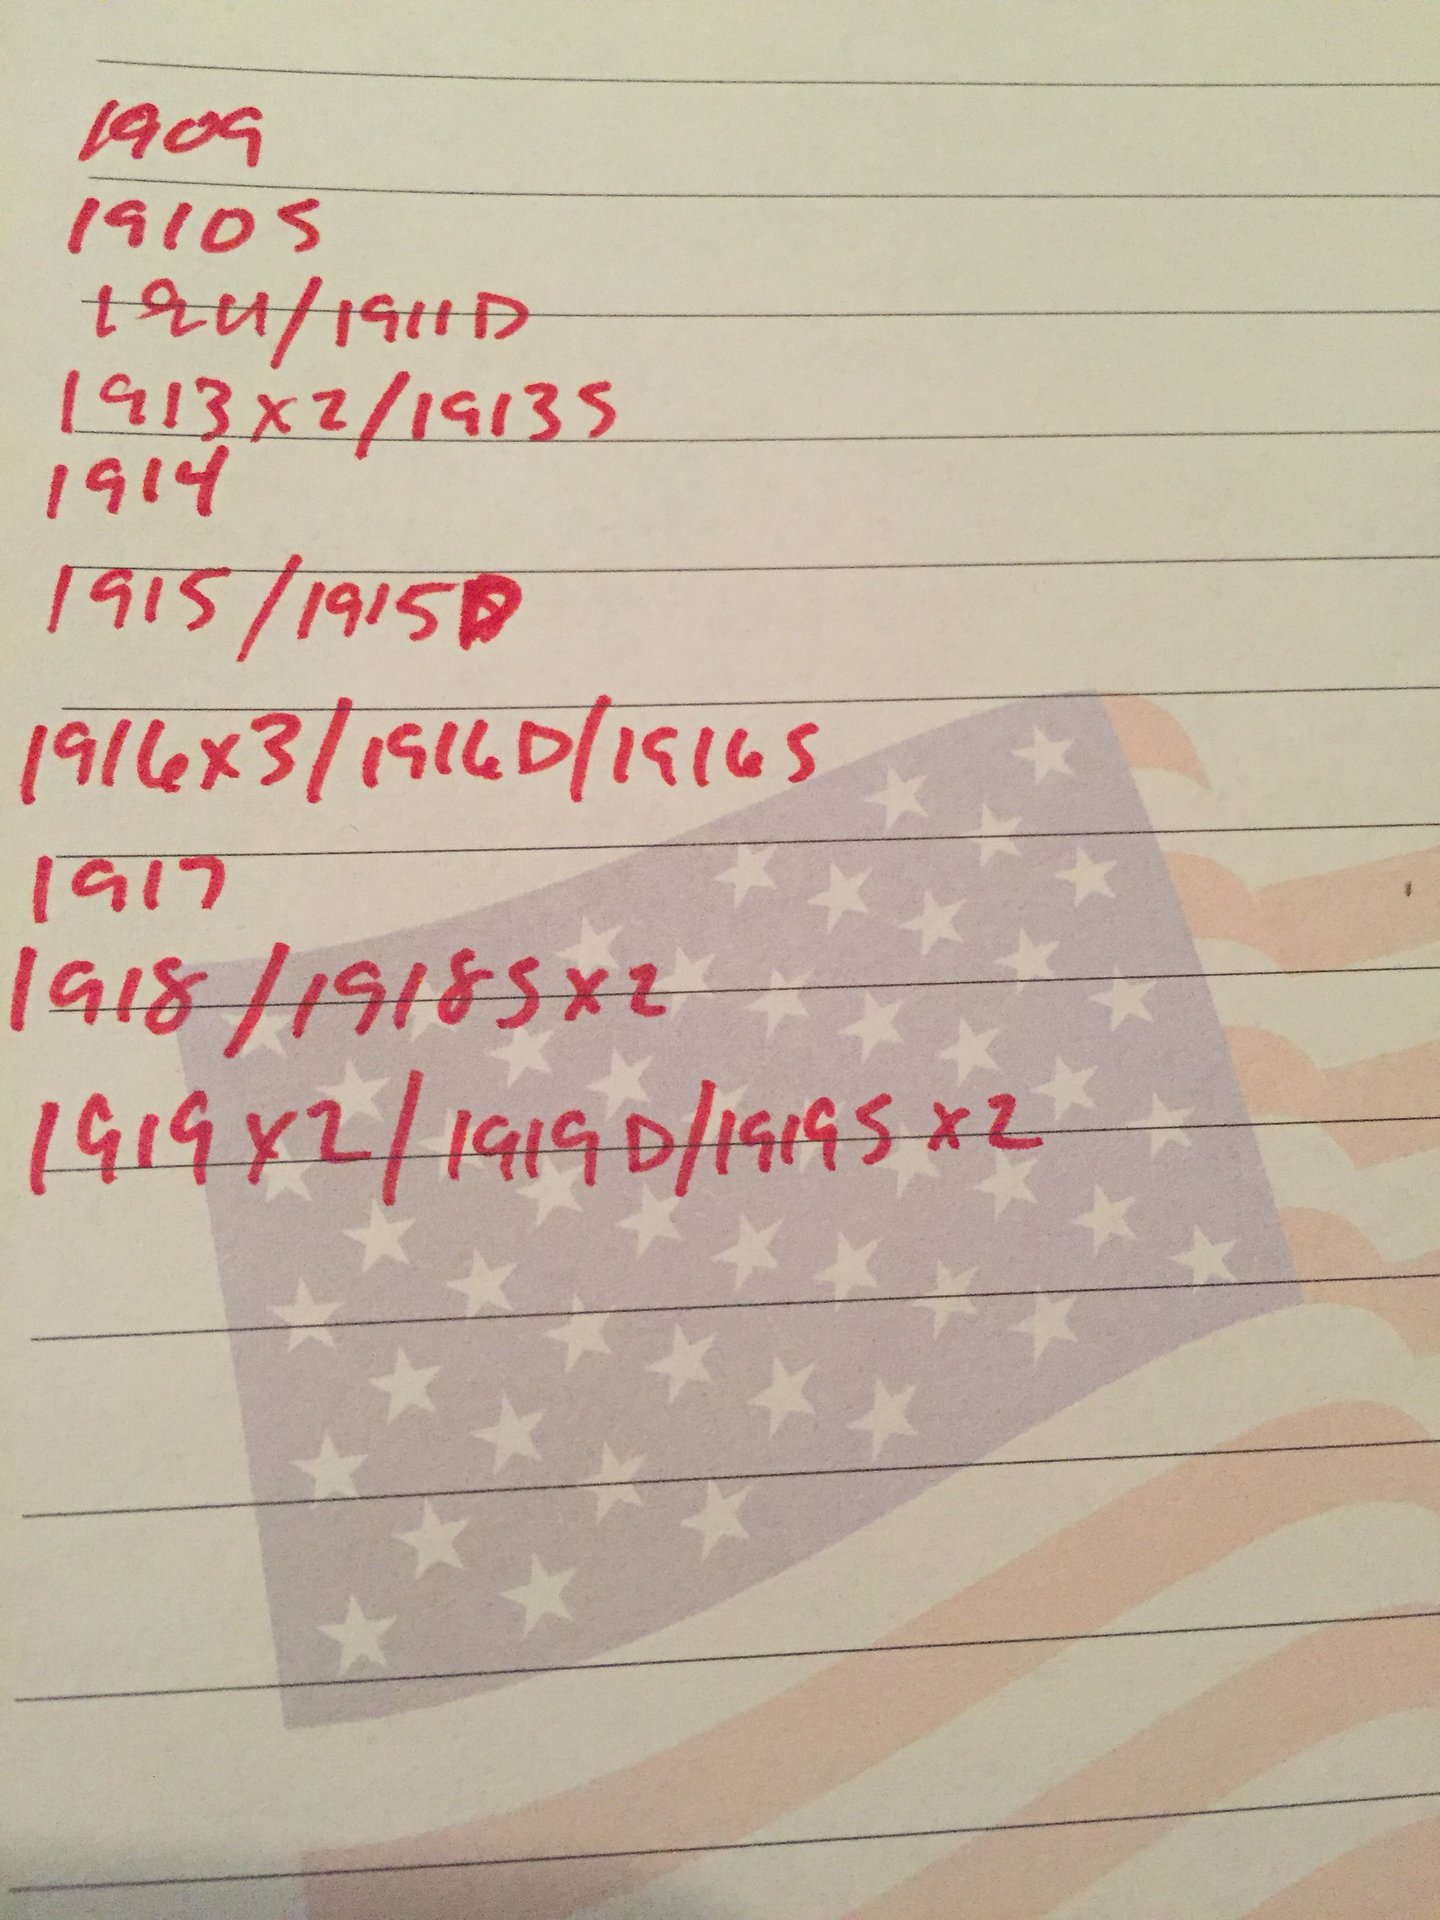 1909
1910 S
1911/1911 D
1913 x 2/1913 S
1914
1915/1915 D
1916 x 3/1916 D/1916 S
1917
1918/1918 S x 2
1919 x 2/1919 D/1919 S x 2